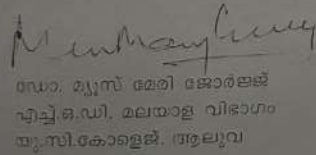 ഡോ. മ്യൂസ് മേരി ജോർജ്ജ്
എച്ച്.ഒ.ഡി. മലയാള വിഭാഗം
യു.സി.കോളെജ്. ആലുവ